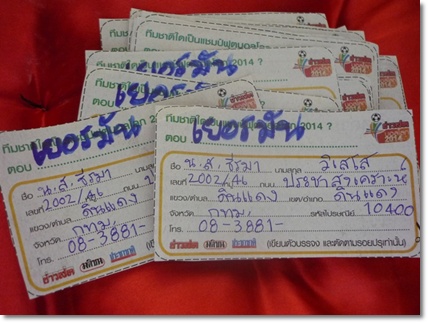 ทีมชาติใดเป็นแชมป์ฟุตบอลโลก
2014 ?
ตอบ
เยอรมัน
เยอรมัน
2014 ?
ตอบ เยอรมัน
ชื่อ น.ส. ธีรมา นามสกุล วิเสโส
เลขที่ 2002/46 ถนน ประชาสงเคราะห์
แขวง/ตำบล ดินแดง เขต/อำเภอ ดินแดง
จังหวัด กทม. รหัสไปรษณีย์ 10400
โทร. 08-3881-
ข่าวสด มติชน (เขียนตัวบรรจง และตัดตามรอยปรุเท่านั้น)
เยอรมัน
ตอบ
ชื่อ น.ส. ธีรมา นามสกุล
เลขที่ 2002/46 ถนน
แขวง/ตำบล ดินแดง
จังหวัด กทม.
โทร. 08-3881-
ข่าวสด มติชน